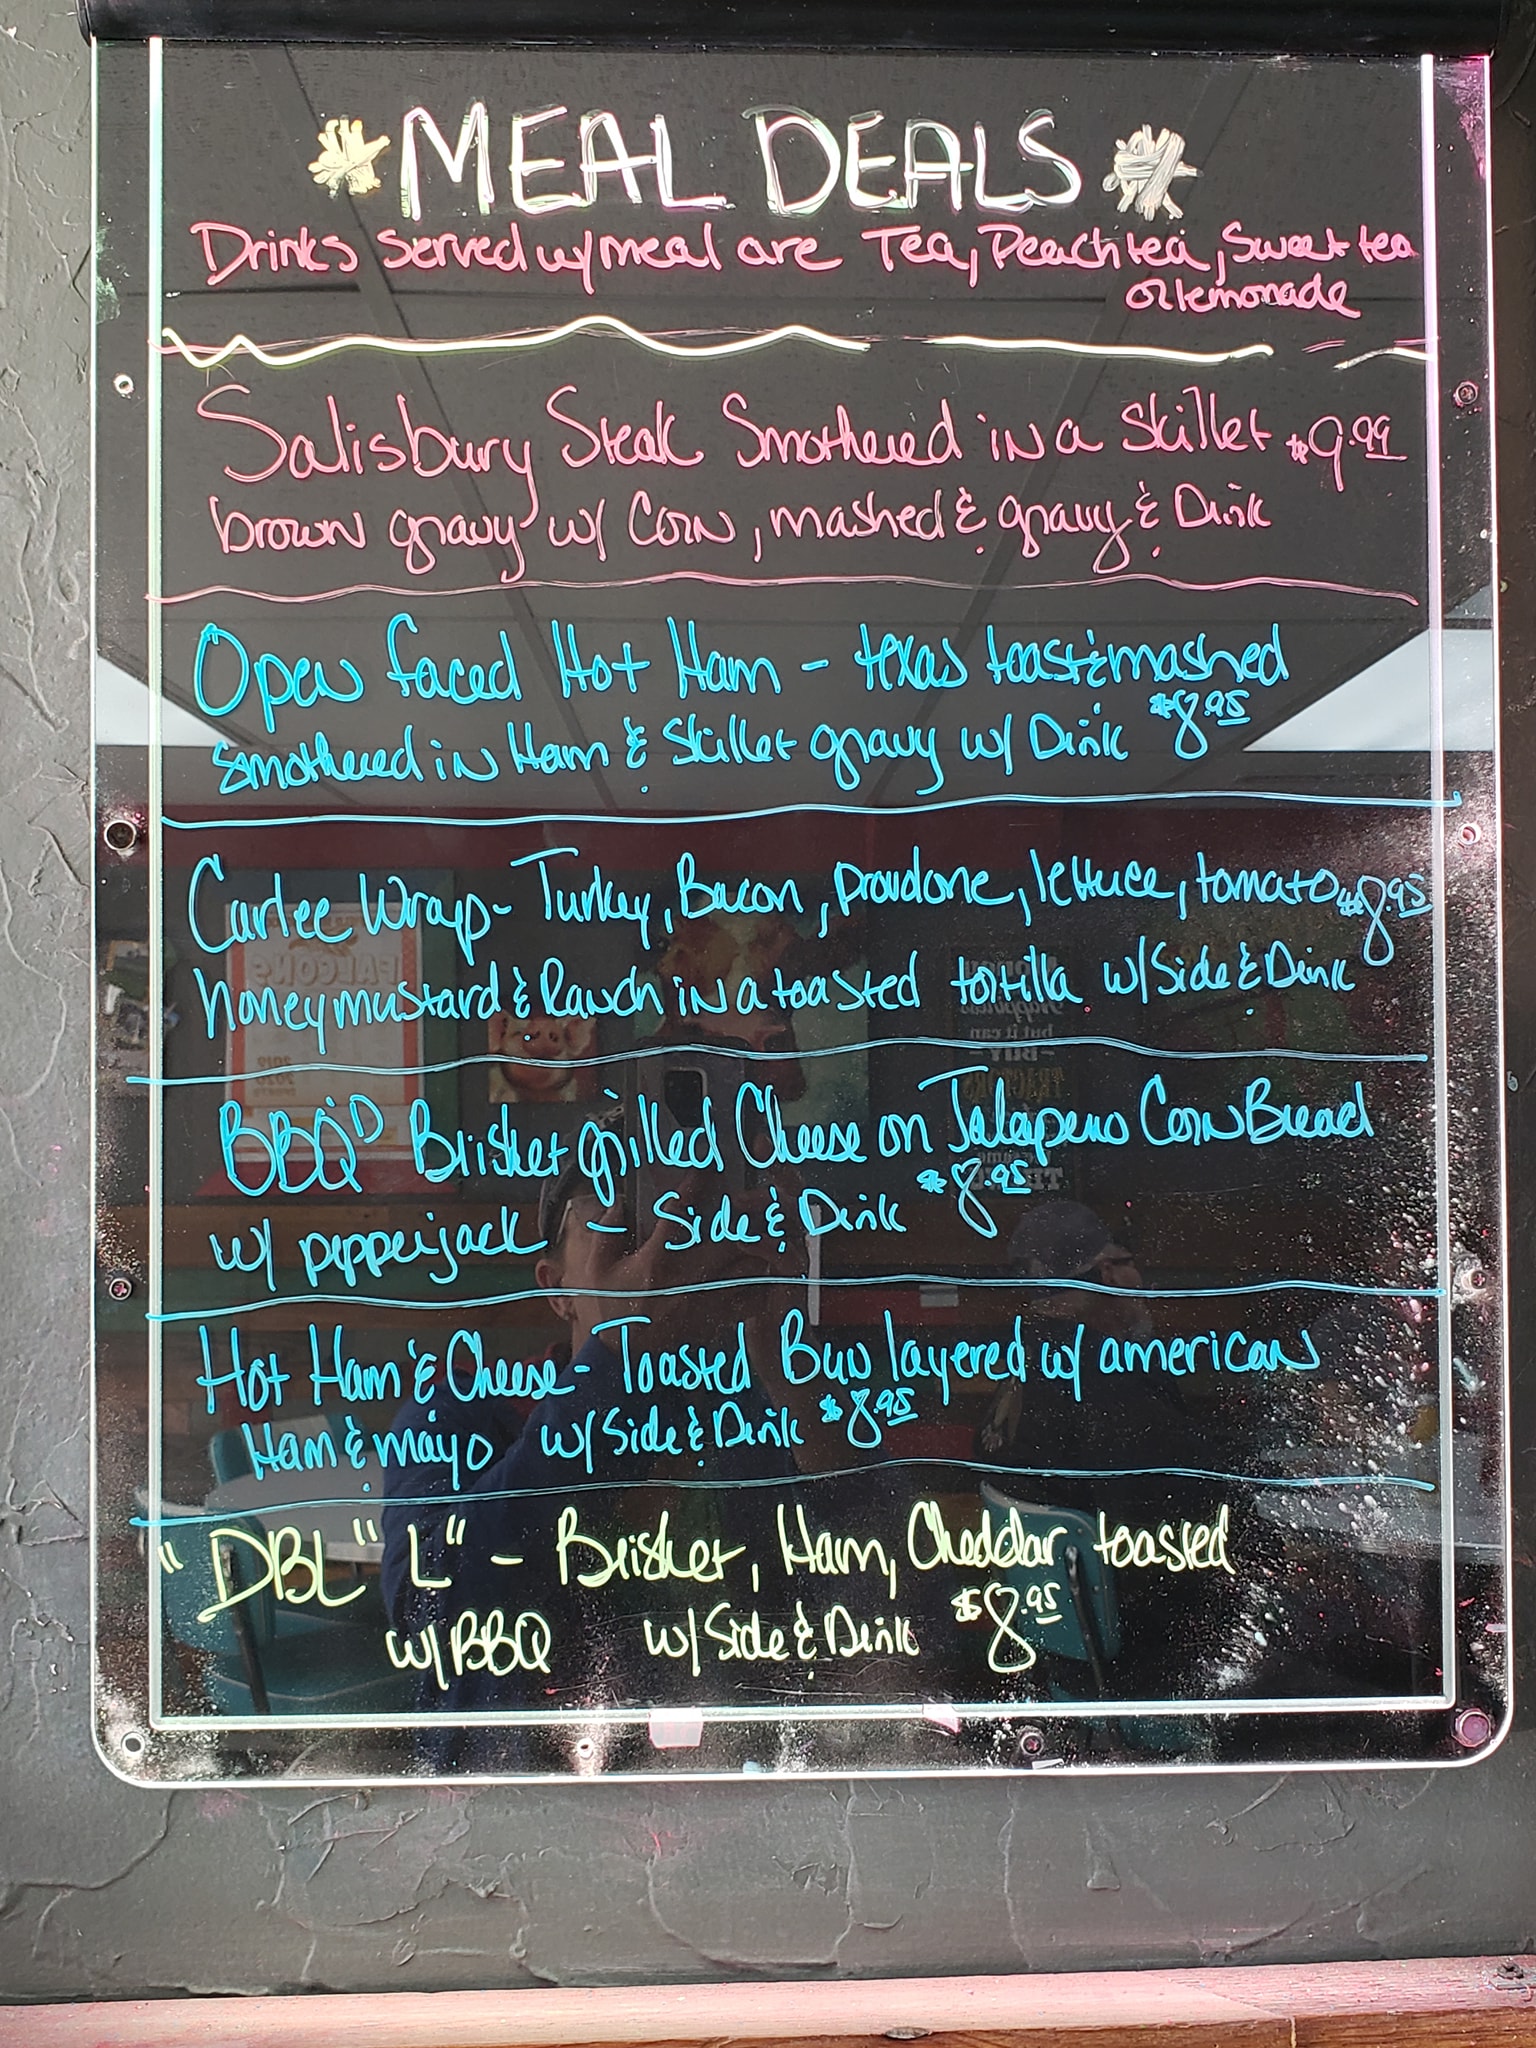 MEAL DEALS
Drinks served w/meal are Tea, Peach tea, Sweet tea
or lemonade
Salisbury Steak Smothered in a Skillet $9.99
brown gravy w/ Corn, mashed & gravy & Drink
Open faced Hot Ham - texas toast & mashed
smothered in Ham & Skillet gravy w/ Drink $8.95
Carlee Wrap - Turkey, Bacon, provolone, lettuce, tomato $8.95
honey mustard & Ranch in a toasted tortilla w/ Side & Drink
BBQ'D Brisket grilled Cheese on Jalapeno Corn Bread
w/ pepperjack - Side & Drink $8.95
Hot Ham & Cheese - Toasted Bun layered w/ american
Ham & mayo w/ Side & Drink $8.95
"DBL" L" - Brisket, Ham, Cheddar toasted
w/ BBQ w/ Side & Drink $8.95